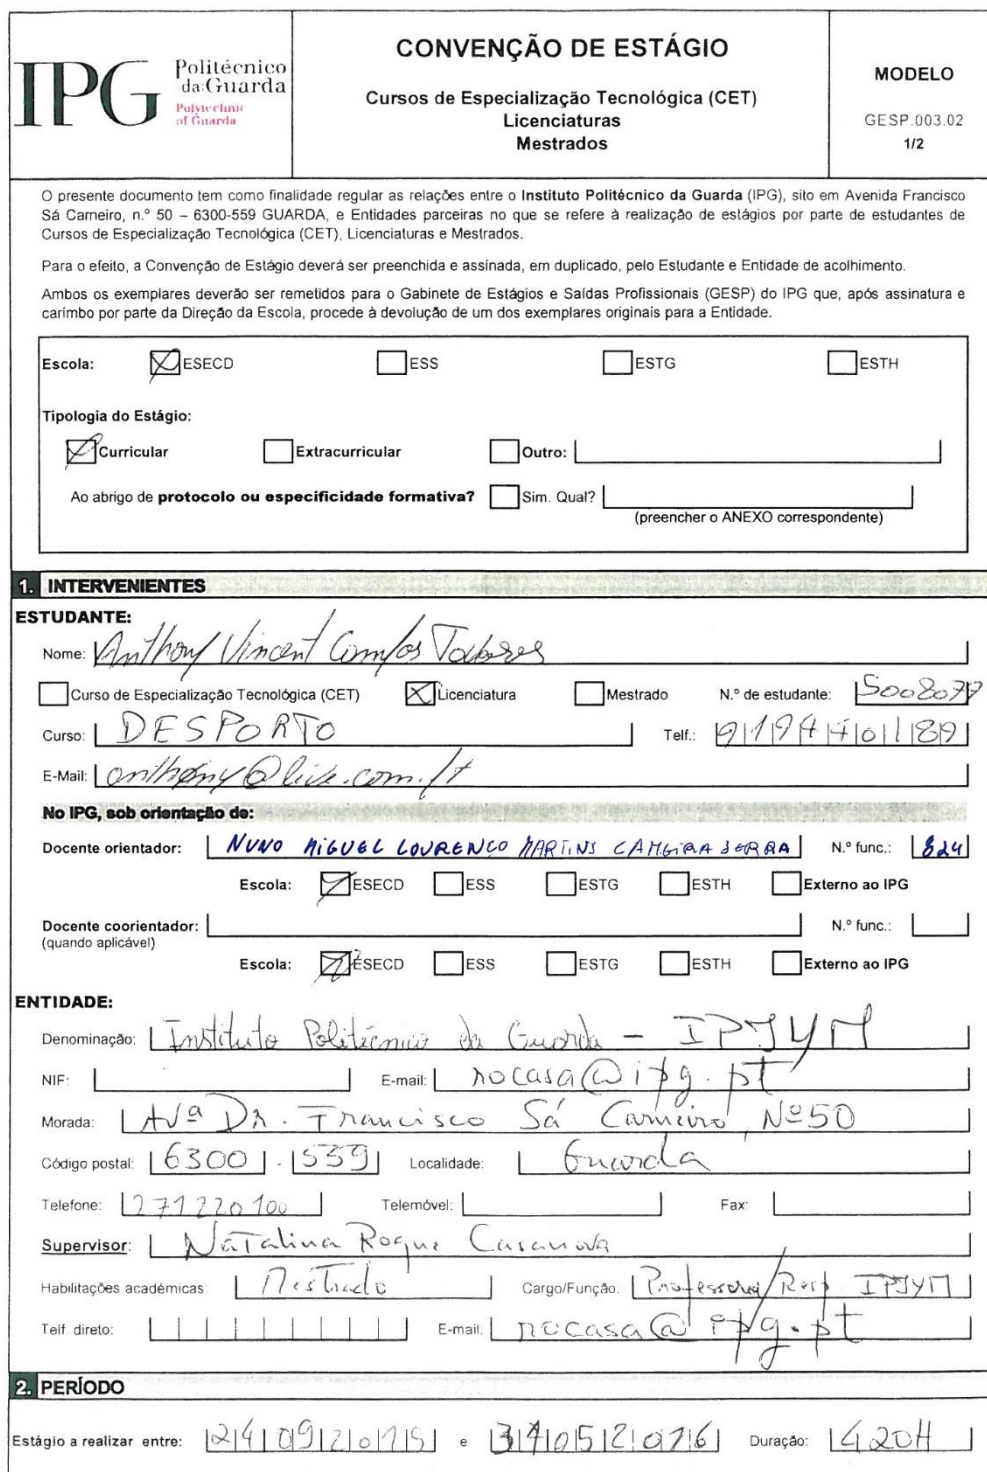 IPG Politécnico da Guarda
Polytechnic of Guarda
CONVENÇÃO DE ESTÁGIO
Cursos de Especialização Tecnológica (CET)
Licenciaturas
Mestrados
MODELO
GESP.003.02
1/2
O presente documento tem como finalidade regular as relações entre o Instituto Politécnico da Guarda (IPG), sito em Avenida Francisco
Sá Carneiro, n.º 50 – 6300-559 GUARDA, e Entidades parceiras no que se refere à realização de estágios por parte de estudantes de
Cursos de Especialização Tecnológica (CET), Licenciaturas e Mestrados.
Para o efeito, a Convenção de Estágio deverá ser preenchida e assinada, em duplicado, pelo Estudante e Entidade de acolhimento.
Ambos os exemplares deverão ser remetidos para o Gabinete de Estágios e Saídas Profissionais (GESP) do IPG que, após assinatura e
carimbo por parte da Direção da Escola, procede à devolução de um dos exemplares originais para a Entidade.
Escola: ESECD ESS ESTG ESTH
Tipologia do Estágio:
Curricular Extracurricular Outro:
Ao abrigo de protocolo ou especificidade formativa? Sim. Qual?
(preencher o ANEXO correspondente)
1. INTERVENIENTES
ESTUDANTE:
Nome: Anthony Vincent Campos Tavares
Curso de Especialização Tecnológica (CET) Licenciatura Mestrado N.º de estudante: 5008077
Curso: DESPORTO Telf.:
E-Mail: anthony@live.com.pt
No IPG, sob orientação de:
Docente orientador: NUNO MIGUEL LOURENÇO MARTINS CAMEIRA SERRA N.º func.: 824
Escola: ESECD ESS ESTG ESTH Externo ao IPG
Docente coorientador: N.º func.:
(quando aplicável)
Escola: ESECD ESS ESTG ESTH Externo ao IPG
ENTIDADE:
Denominação: Instituto Politécnico da Guarda - IPJYM
NIF: E-mail: rocasa@ipg.pt
Morada: Avª Dr. Francisco Sá Carneiro, Nº50
Código postal: 6300 . 559 Localidade: Guarda
Telefone: 271220100 Telemóvel: Fax:
Supervisor: Natalina Roque Casanova
Habilitações académicas: Mestrado Cargo/Função: Professora/Resp. IPJYM
Telf direto: E-mail: rocasa@ipg.pt
2. PERÍODO
Estágio a realizar entre: 24092015 e 31052016 Duração: 420H